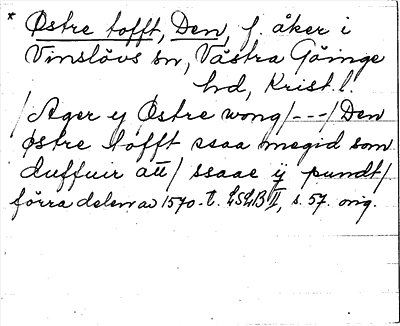 * Østre tofft, Den, f. åker i
Vinslövs sn, Västra Göinge
hd, Krist. l.
/Ager y Østre wong/---/Den
østre tofft ssaa megid som
duffuir att/ ssaae ij pundt/
förra delen av 1570-t. LSLB II, s. 57. orig.